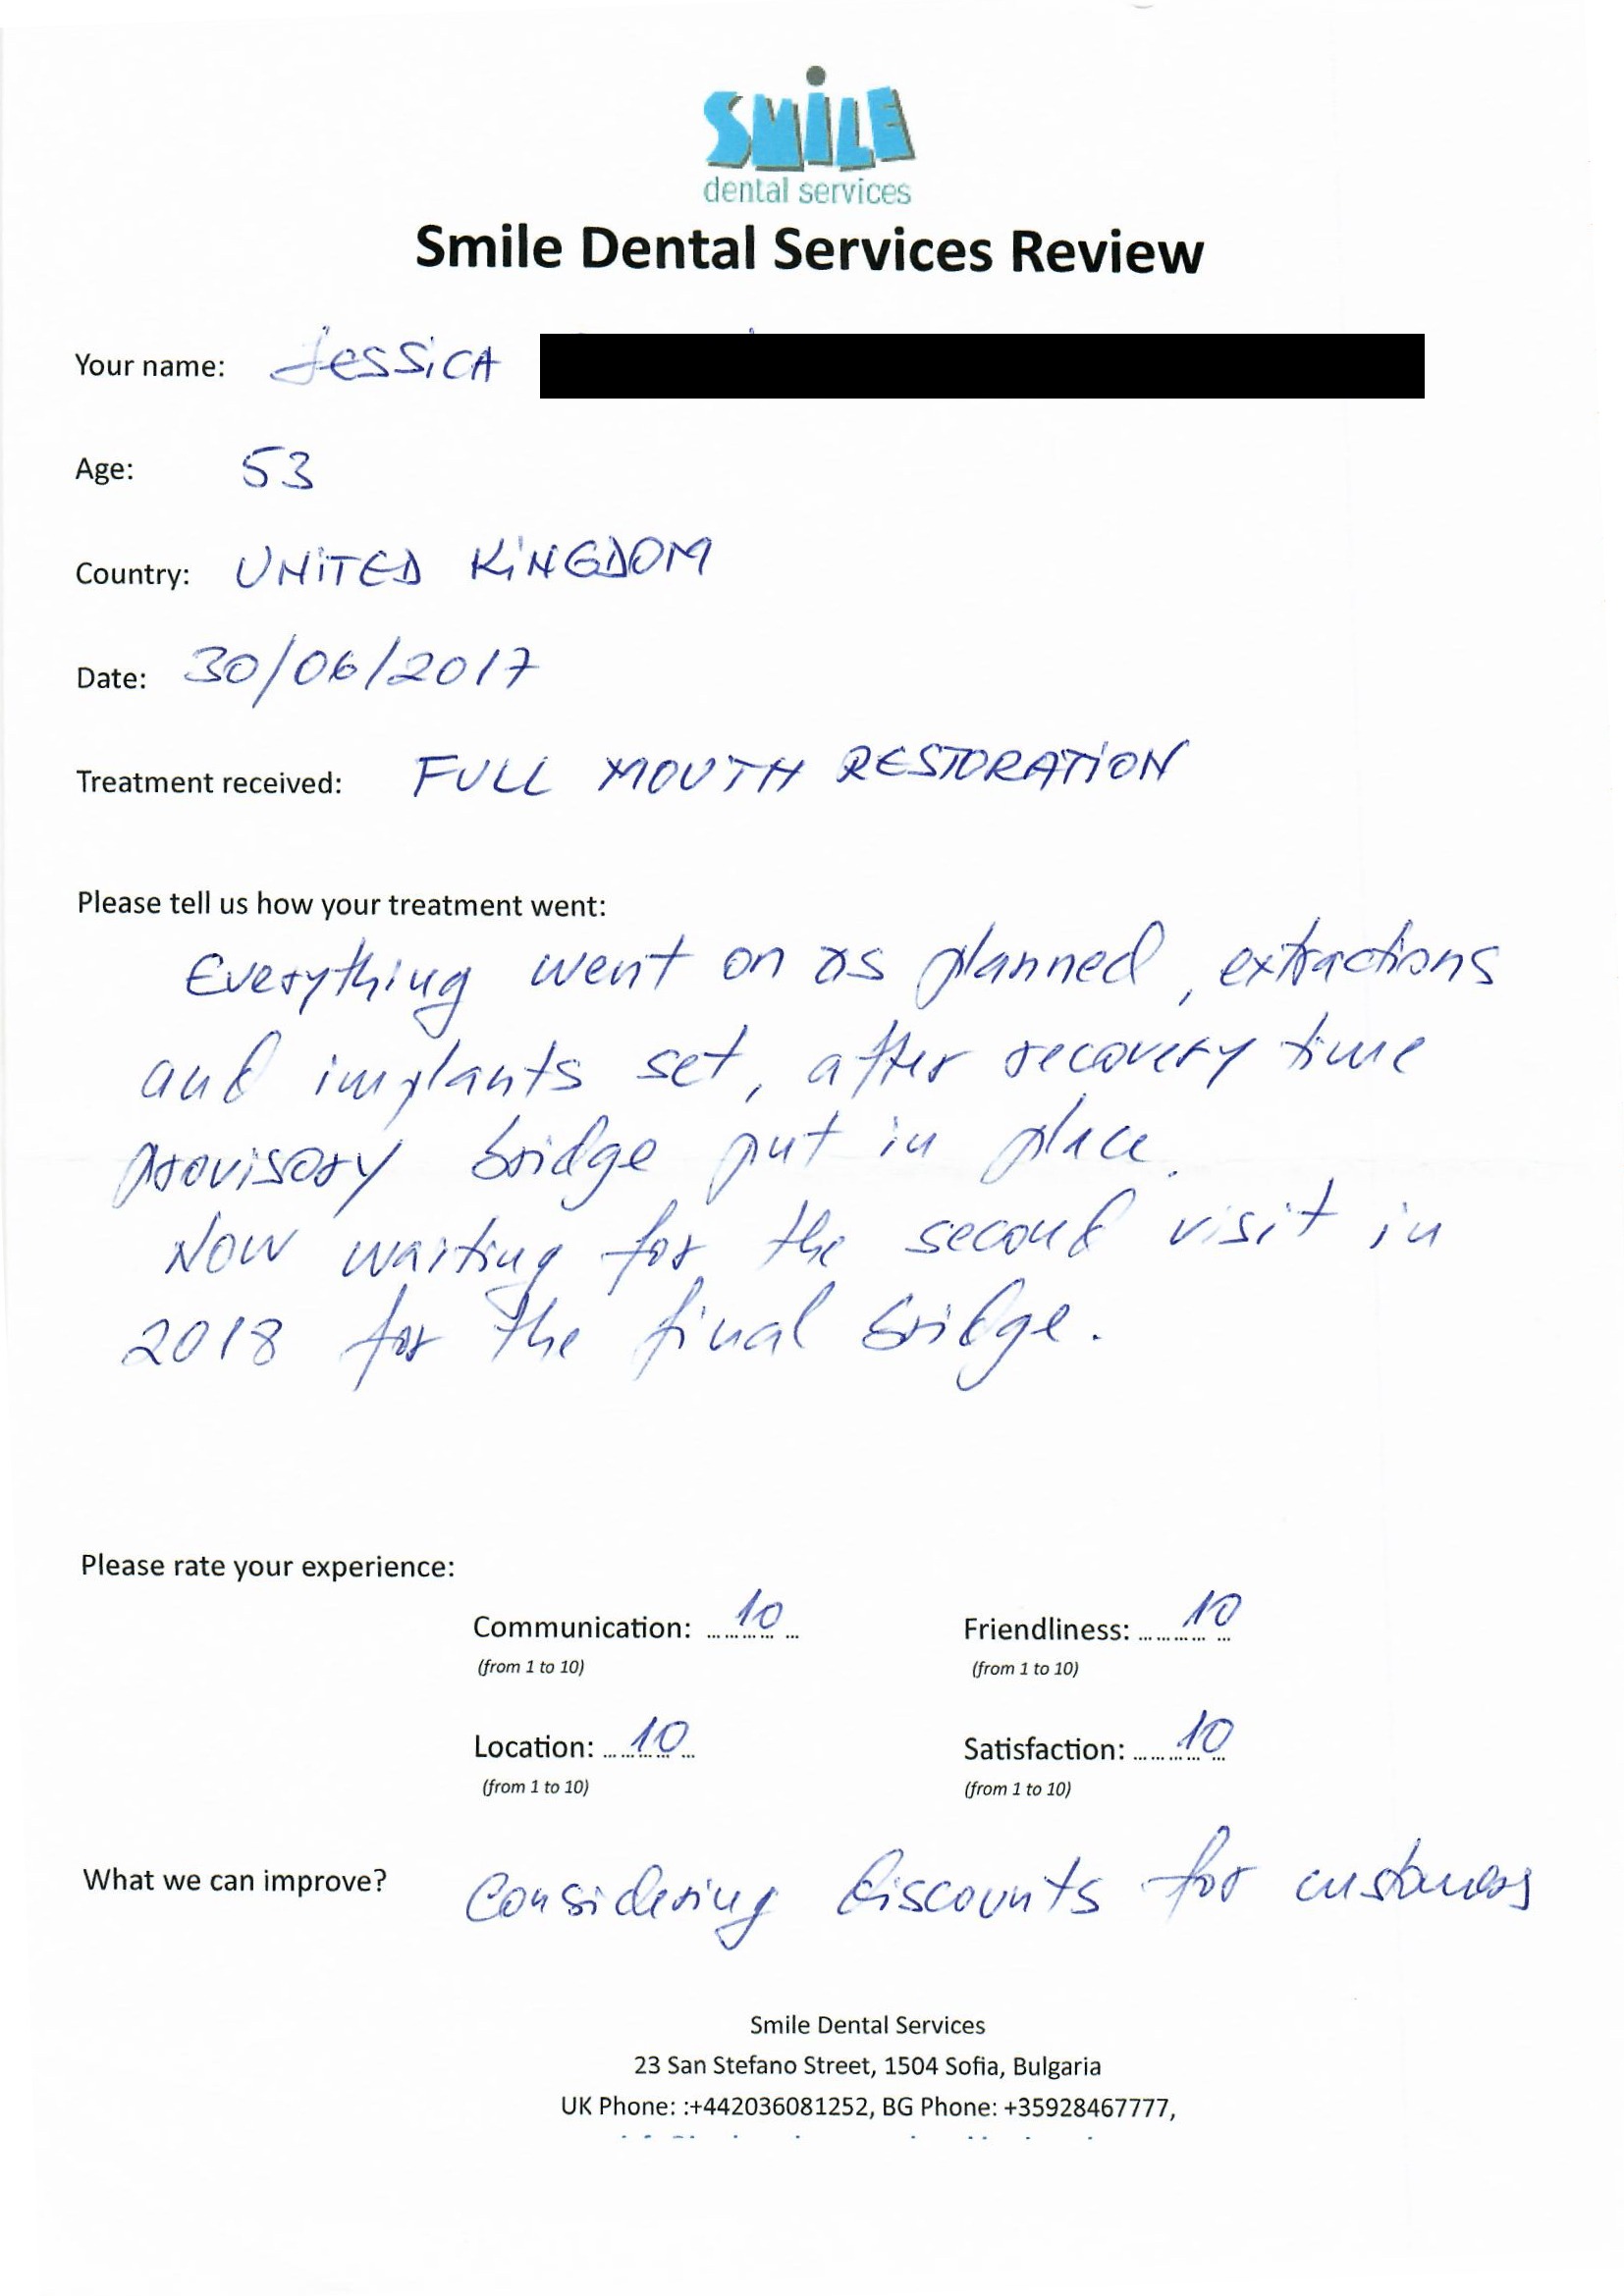 SMiLE
dental services
Smile Dental Services Review
Your name: Jessica
Age: 53
Country: UNITED KINGDOM
Date: 30/06/2017
Treatment received: FULL MOUTH RESTORATION
Please tell us how your treatment went:
Everything went on as planned, extractions
and implants set, after recovery time
provisory bridge put in place.
Now waiting for the second visit in
2018 for the final bridge.
Please rate your experience:
Communication: 10 Friendliness: 10
(from 1 to 10) (from 1 to 10)
Location: 10 Satisfaction: 10
(from 1 to 10) (from 1 to 10)
What we can improve? Considering discounts for customers
Smile Dental Services
23 San Stefano Street, 1504 Sofia, Bulgaria
UK Phone: :+442036081252, BG Phone: +35928467777,